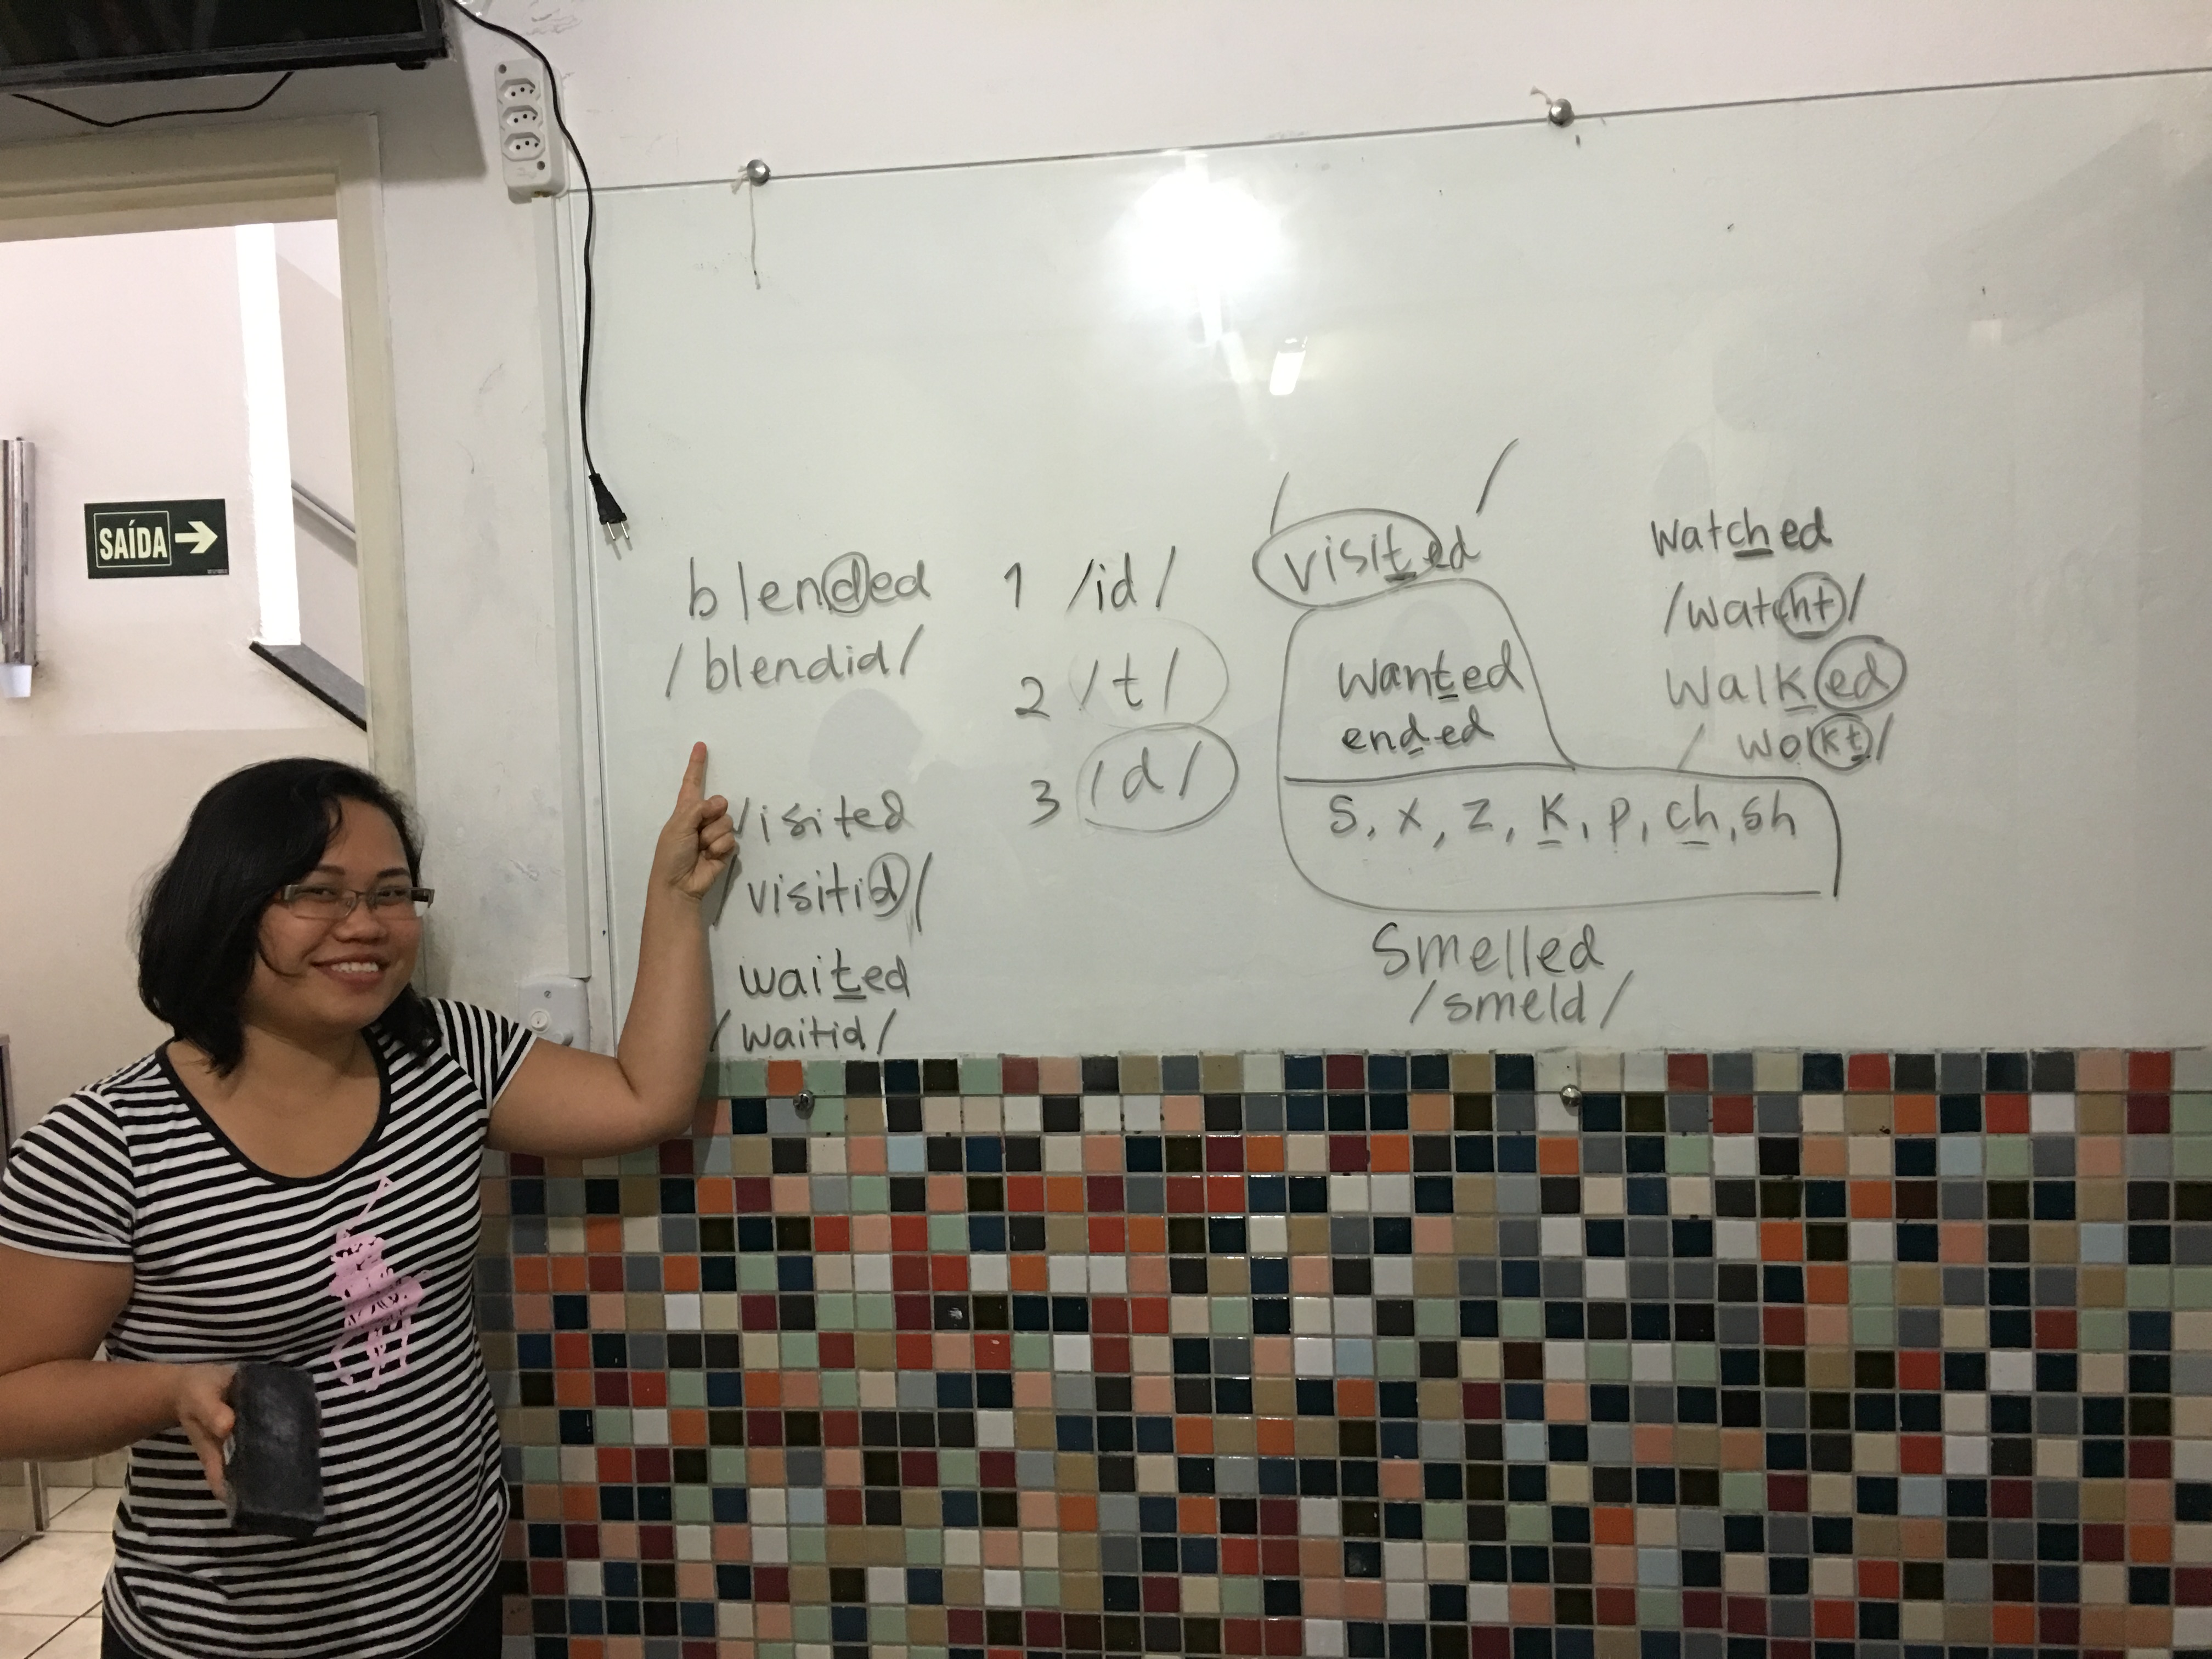 SAÍDA
blended
/blendid/
visited
/visitid/
waited
/waitid/
1 /id/
2 /t/
3 /d/
/ visited /
wanted
ended
s, x, z, k, p, ch, sh
Smelled
/smeld/
watched
/watcht/
Walked
/ wolkt/